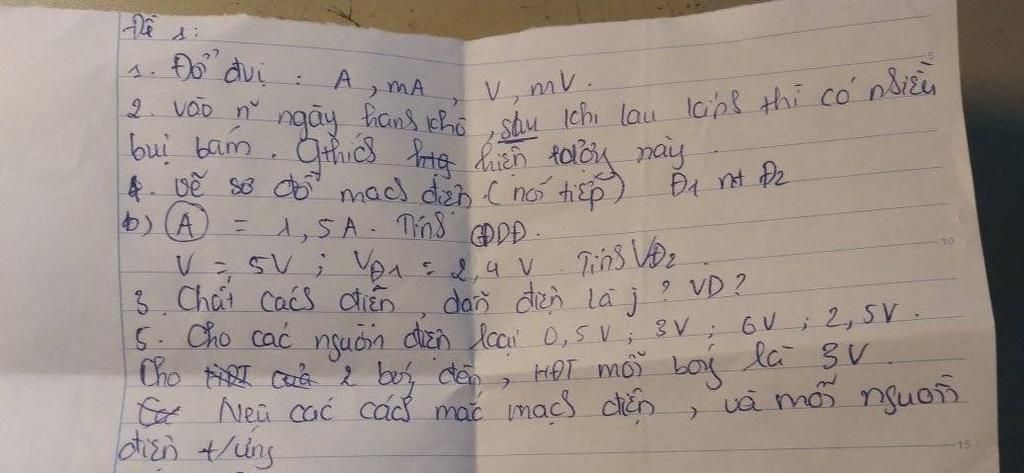 Đề 1:
1. Đổi đvị : A, mA, V, mV.
2. Vào n~ ngày hanh khô, sau khi lau kính thì có nhiều
bụi bám. Gthích hiện tượng này.
4. vẽ sơ đồ mạch điện (nối tiếp) Đ1 nt Đ2
b) (A) = 1,5A. Tính CĐDĐ.
V = 5V ; VĐ1 = 2,4 V. Tính VĐ2.
3. Chất cách điện, dẫn điện là j ? VD ?
5. Cho các nguồn điện loại 0,5V ; 3V ; 6V ; 2,5V.
Cho 2 bóng đèn, HĐT mỗi bóng là 3V.
Nêu các cách mắc mạch điện, và mỗi nguồn
điện t/ứng